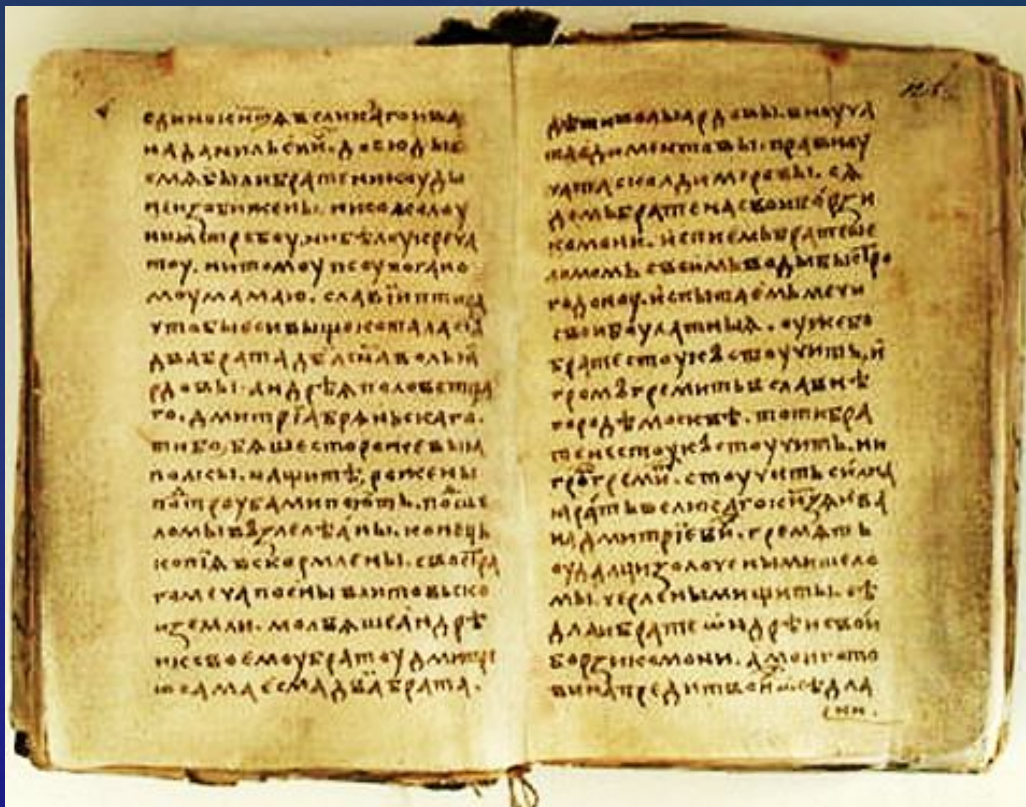 единокн҃зѧ великаго ива
наданильеви̇. досюды е
смѧбылибратеникоуды
неизобижены. нисоколоу
ниꙗстребоу. нибѣлоукречѧ
тоу. нитомоупсоупогано
моумамаю. славїиптица
чтобыесивыщекоталасиа
двабратадвасн҃авольꙗ
рдовы. андрѣѧполоветца
го. дмитрїабрѧньскаго.
тибо, бѧшесторожевыꙗ
полкы. нащитѣ, рожены
по҆троубамипоють. по҆ше
ломывъзлелѣаны. конець
копїѧвскормлены. свостра
гомечапоеныв литовьско
иземли. молвѧшеандрѣ
иксвоемоубратоудмитре
юсамаесмадвабрата.
дѣтивольꙗрдовы. вноуча
таедиментовы. правноу
чатасколдимеровы. сѧ
демьбратенасвоиборзи
комони. испиемьбратеше
ломомьсвоимьводыбыстро
годоноу. испытаемьмечи
своибоулатныꙗ. оужебо
братестоукъстоучить, и
громъгремитьвславнѣ
городѣмосквѣ. тотибра
тенестоукъстоучить. ни
гро҆греми҆. стоучитьсилнаꙗ
ратьвеликагокн҃зѧива
надмитрїеви҆. гремѧть
оудалцизолоченымишело
мы. черленымищиты. сѣ
длаибратеѡндрѣисвои
борзикомони. амоигото
винапредитвоиѡсѣдла
ни.